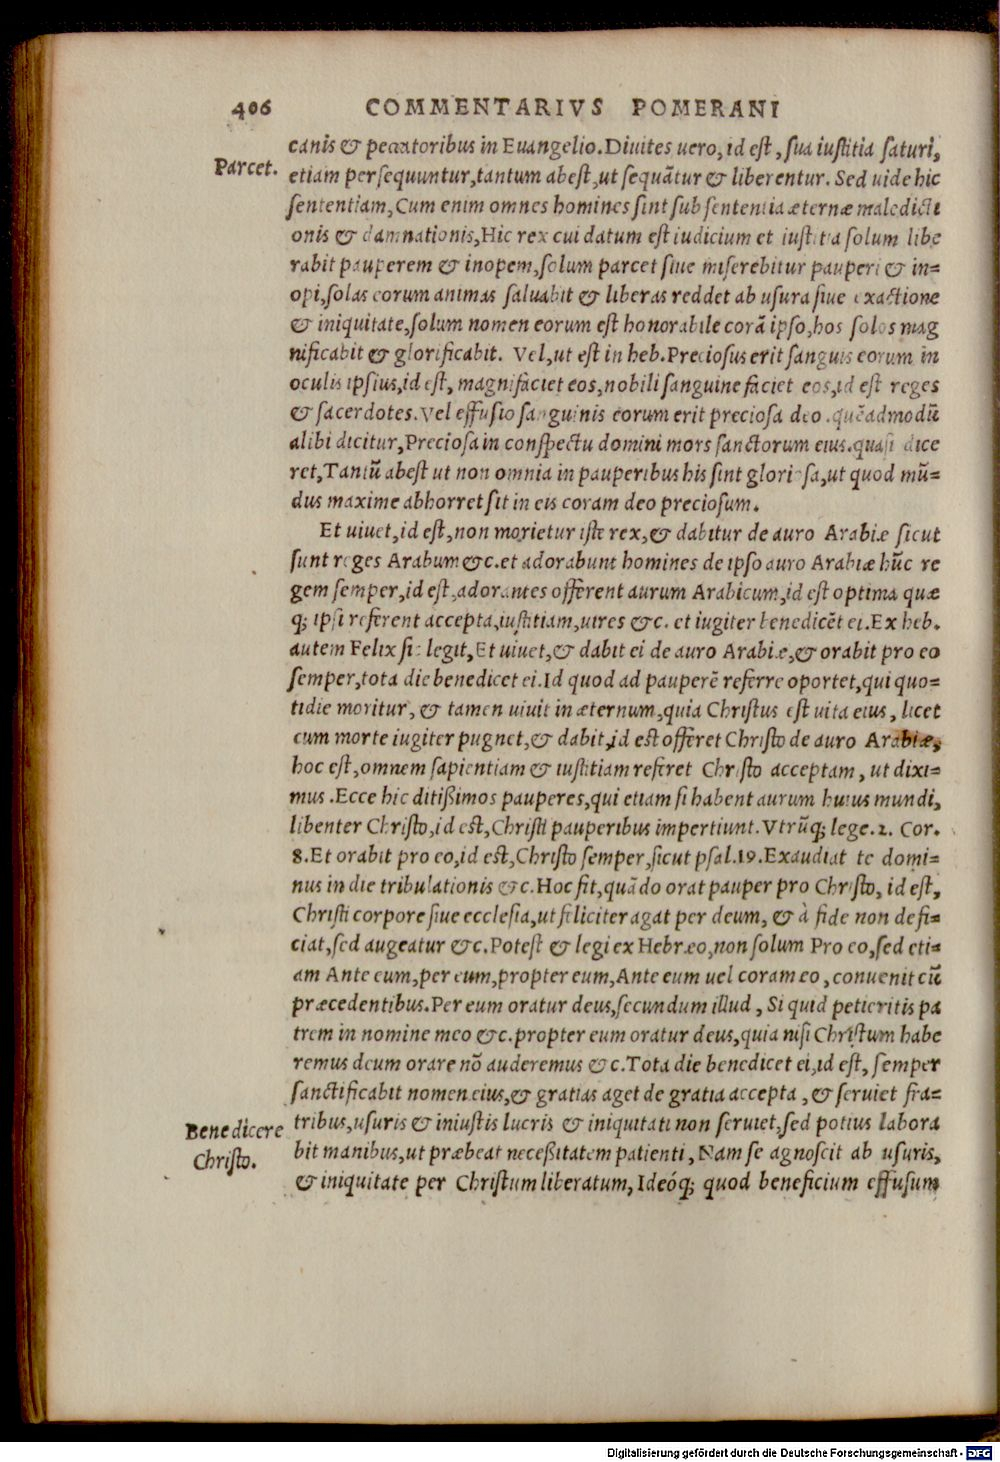 406 COMMENTARIVS POMERANI
canis & peccatoribus in Euangelio. Diuites uero, id est, sua iustitia saturi,
Parcet.
etiam persequuntur, tantum abest, ut sequātur & liberentur. Sed uide hic
sententiam, Cum enim omnes homines sint sub sententia æternæ maledicti
onis & damnationis, Hic rex cui datum est iudicium et iustitia solum libe
rabit pauperem & inopem, solum parcet siue miserebitur pauperi & in=
opi, solas eorum animas saluabit & liberas reddet ab usura siue exactione
& iniquitate, solum nomen eorum est honorabile corā ipso, hos solos mag
nificabit & glorificabit. Vel, ut est in heb. Preciosus erit sanguis eorum in
oculis ipsius, id est, magnifaciet eos, nobili sanguine faciet eos, id est reges
& sacerdotes. Vel effusio sanguinis eorum erit preciosa deo. quēadmodū
alibi dicitur, Preciosa in conspectu domini mors sanctorum eius. quasi dice
ret, Tantū abest ut non omnia in pauperibus his sint gloriosa, ut quod mū=
dus maxime abhorret sit in eis coram deo preciosum.
Et uiuet, id est, non morietur iste rex, & dabitur de auro Arabiæ sicut
sunt reges Arabum &c. et adorabunt homines de ipso auro Arabiæ hūc re
gem semper, id est, adorantes offerent aurum Arabicum, id est optima quæ
q; ipsi referent accepta, iustitiam, uires &c. et iugiter benedicēt ei. Ex heb.
autem Felix sic legit, Et uiuet, & dabit ei de auro Arabiæ, & orabit pro eo
semper, tota die benedicet ei. Id quod ad pauperē referre oportet, qui quo=
tidie moritur, & tamen uiuit in æternum, quia Christus est uita eius, licet
cum morte iugiter pugnet, & dabit, id est offeret Christo de auro Arabiæ,
hoc est, omnem sapientiam & iustitiam referet Christo acceptam, ut dixi=
mus. Ecce hic ditißimos pauperes, qui etiam si habent aurum huius mundi,
libenter Christo, id est, Christi pauperibus impertiunt. Vtrūq; lege. 2. Cor.
8. Et orabit pro eo, id est, Christo semper, sicut psal. 19. Exaudiat te domi=
nus in die tribulationis &c. Hoc fit, quādo orat pauper pro Christo, id est,
Christi corpore siue ecclesia, ut feliciter agat per deum, & à fide non defi=
ciat, sed augeatur &c. Potest & legi ex Hebræo, non solum Pro eo, sed eti=
am Ante eum, per eum, propter eum, Ante eum uel coram eo, conuenit cū
præcedentibus. Per eum oratur deus, secundum illud, Si quid petieritis pa
trem in nomine meo &c. propter eum oratur deus, quia nisi Christum habe
remus deum orare nō auderemus &c. Tota die benedicet ei, id est, semper
sanctificabit nomen eius, & gratias aget de gratia accepta, & seruiet fra=
Benedicere
tribus, usuris & iniustis lucris & iniquitati non seruiet, sed potius labora
Christo.
bit manibus, ut præbeat neceßitatem patienti, Nam se agnoscit ab usuris,
& iniquitate per Christum liberatum, Ideóq; quod beneficium effusum
Digitalisierung gefördert durch die Deutsche Forschungsgemeinschaft - DFG